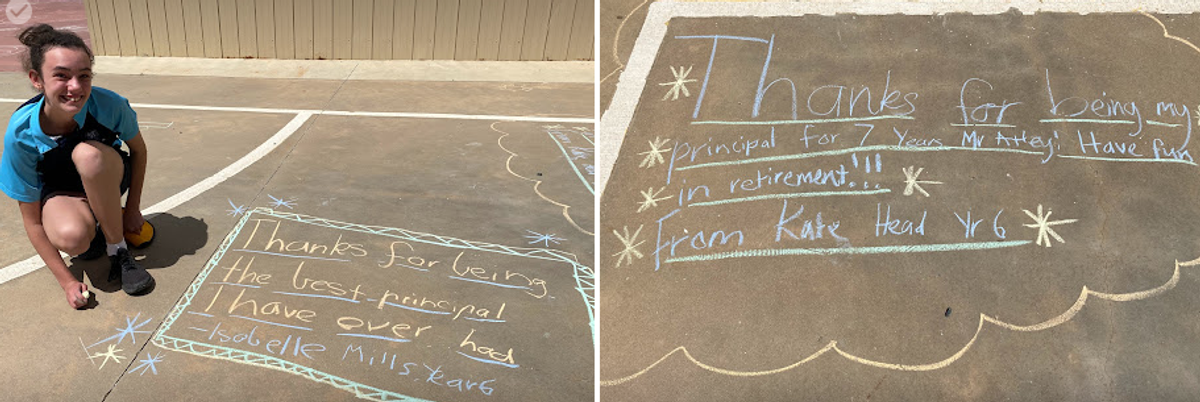 Thanks for being
the best principal
I have ever had
-Isabelle Mills. Year 6
Thanks for being my
principal for 7 Years Mr Attey! Have fun
in retirement!!!
From Kate Head Yr 6